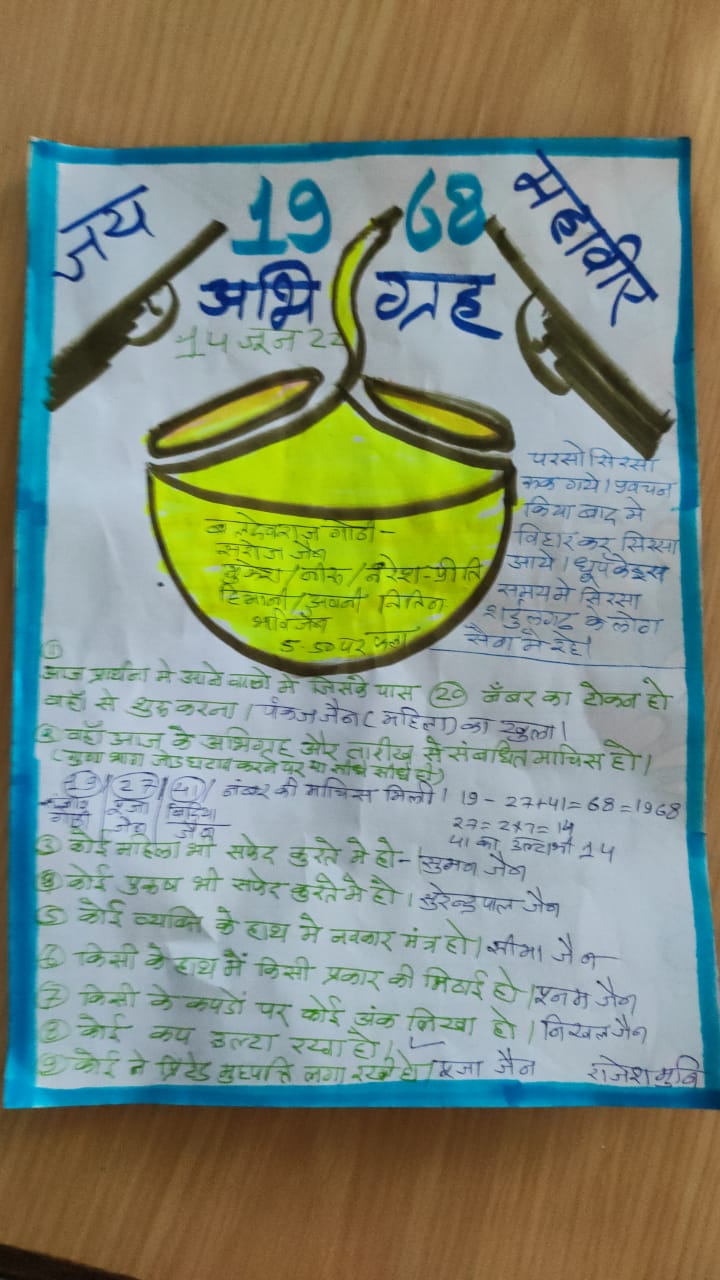 जय
19 68
महावीर
अभि ग्रह
14 जून 22
परसो सिरसा
रुक गये। प्रवचन
किया बाद मे
विहार कर सिरसा
आये।
समय मे सिरसा
के लोग
सेवा मे रहे।
गोठी-
सरोज जैन
/ नीरू / नरेश-प्रीति
हिमानी / अवनी नितिन
जैन
5-50 पर फला
①
आज प्रार्थना मे आने वालो मे जिसके पास (20) नँबर का टोकन हो
वहाँ से शुरू करना। पंकज जैन (महिला) का खुला।
② वहाँ आज के अभिग्रह और तारीख से संबधित माचिस हो।
(गुणा भाग जोड घटाव करने पर या सीधे सीधे हो)
/ (27) / (41) / नंबर की माचिस मिली। 19 - 27+41=68=1968
गोठी जैन जैन
27=2x7=14
41 का उल्टा भी 14
③ कोई महिला भी सफेद कुरते मे हो- सुमन जैन
④ कोई पुरूष भी सफेद कुरते मे हो। सुरेन्द्रपाल जैन
⑤ कोई व्यक्ति के हाथ मे नवकार मंत्र हो। सीमा जैन
⑥ किसी के हाथ में किसी प्रकार की मिठाई हो। पूनम जैन
⑦ किसी के कपडों पर कोई अंक लिखा हो। निखल जैन
⑧ कोई कप उल्टा रखा हो। ✓
⑨ कोई ने प्रिंटेड मुहपति लगा रखी हो। पूजा जैन
राजेश मुनि